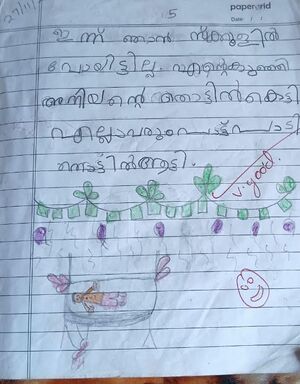 27/11/
5
papergrid
Date: / /
ഇന്ന് ഞാൻ സ്കൂളിൽ
പോയിട്ടില്ല. എന്റെകുഞ്ഞി
അനിയന്റെ തൊട്ടിൽകെട്ടി
എല്ലാവരും പാട്ട് പാടി
തൊട്ടിൽആട്ടി.
V.good